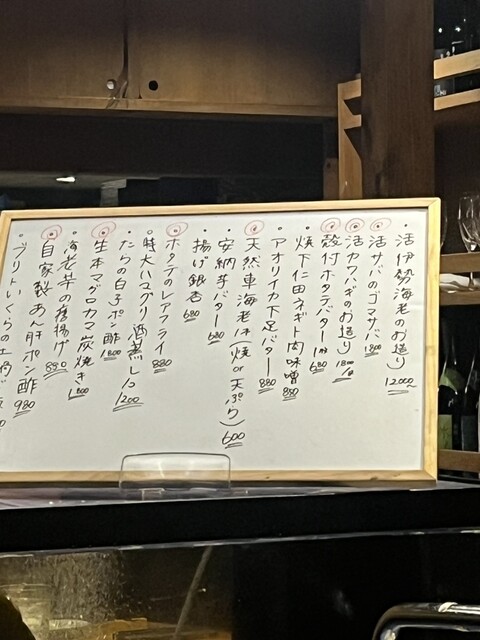 ・活伊勢海老のお造り 12000
活サバのゴマサバ 1800
活カワハギのお造り 1800
殻付ホタテバター 1ヶ 680
焼下仁田ネギト肉味噌 880
アオリイカ下足バター 880
天然車海老 1本(焼 or 天ぷら) 600
・安納芋バター 680
・揚げ銀杏 680
ホタテのレアフライ 880
・特大ハマグリ酒蒸し 1コ 1200
・たらの白子ポン酢 1800
生本マグロカマ炭焼き 1800
・海老芋の唐揚げ 880
自家製あん肝ポン酢 980
・ブリトいくらの土鍋